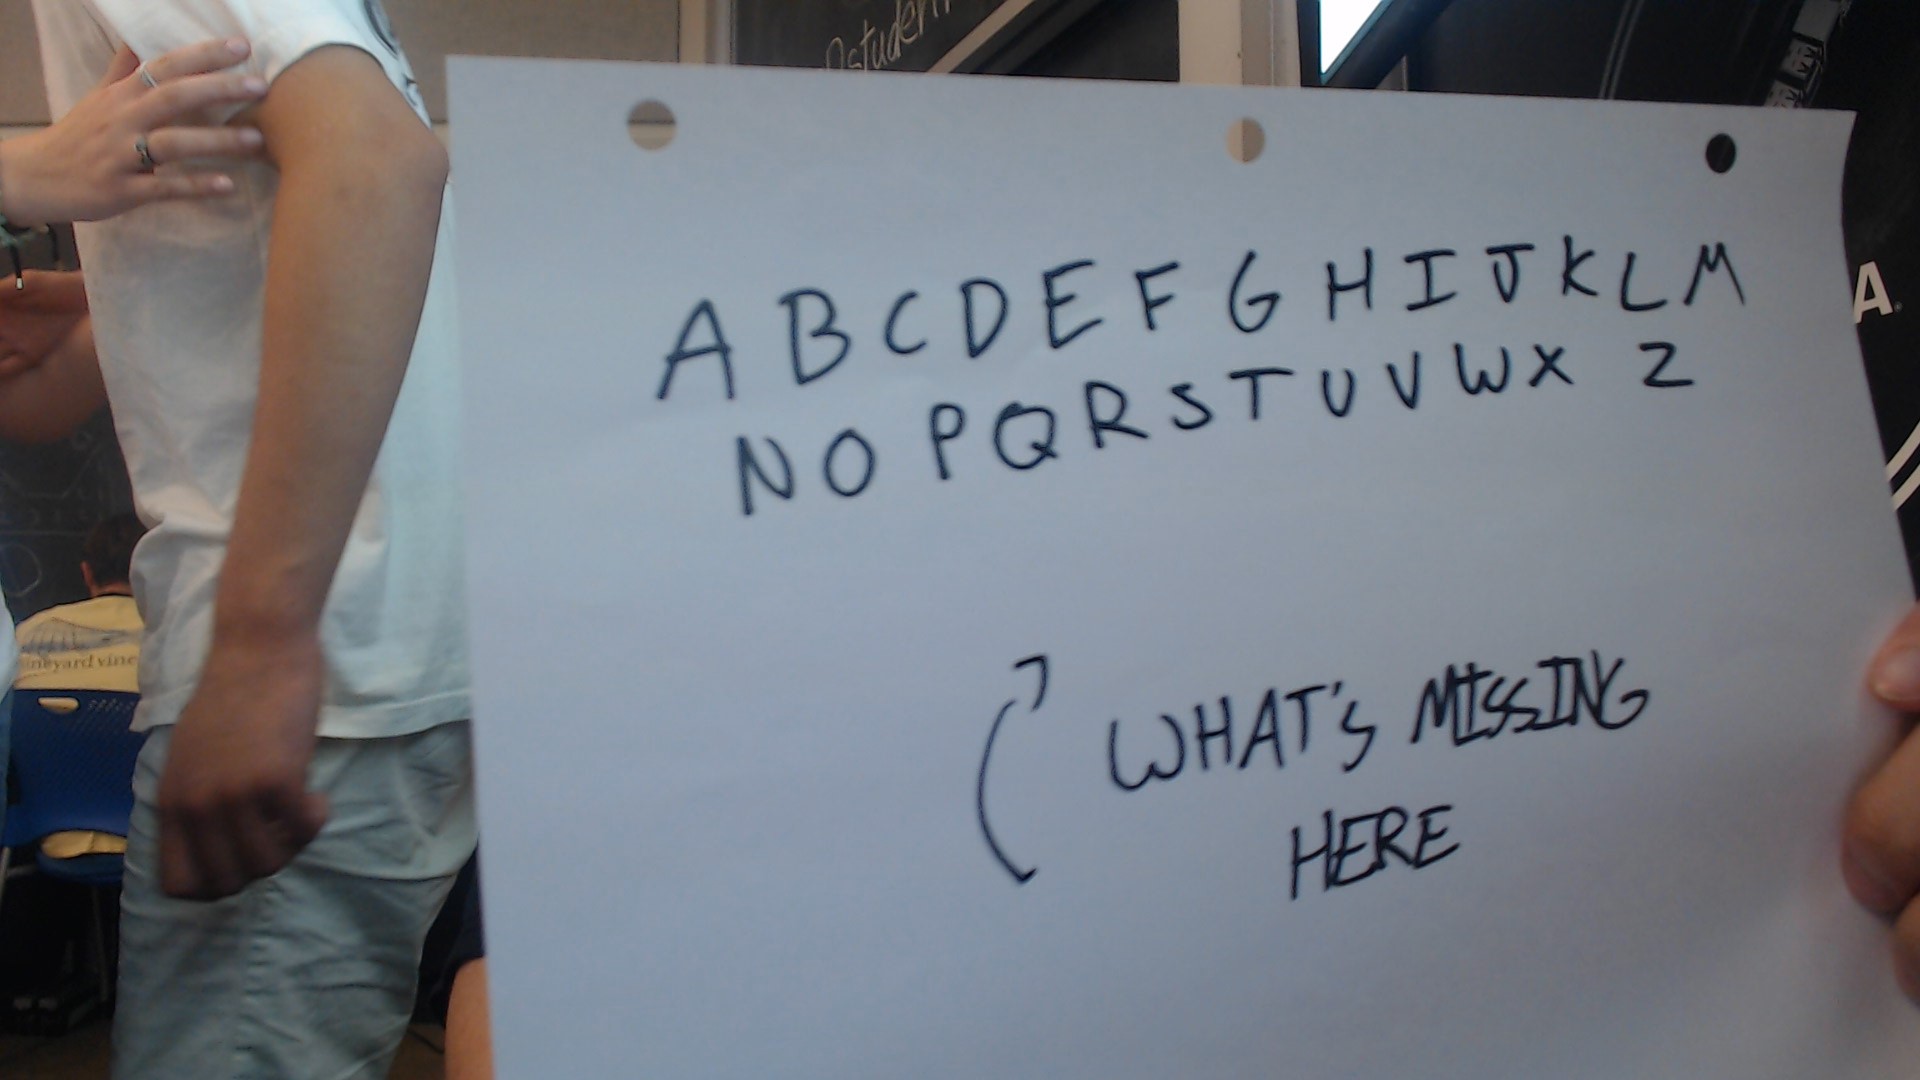 Pstuden
A B C D E F G H I J K L M
N O P Q R S T U V W X Z
WHAT'S MISSING
HERE
A.
ineyard vine